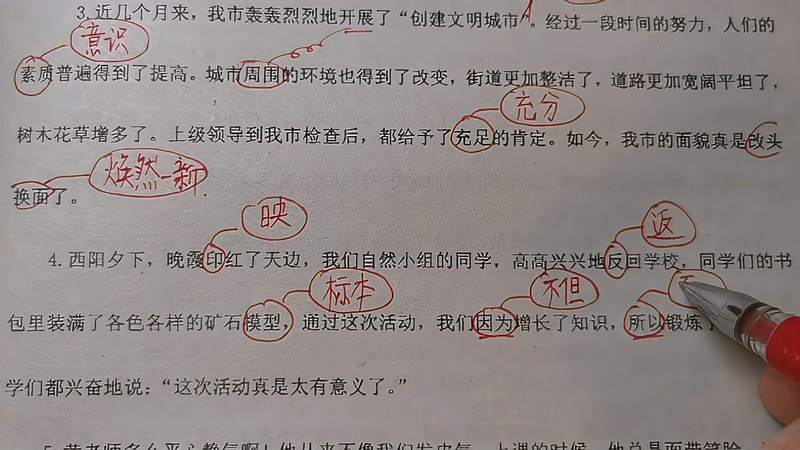 3.近几个月来，我市轰轰烈烈地开展了“创建文明城市”。经过一段时间的努力，人们的
意识
素质普遍得到了提高。城市周围的环境也得到了改变，街道更加整洁了，道路更加宽阔平坦了，
充分
树木花草增多了。上级领导到我市检查后，都给予了充足的肯定。如今，我市的面貌真是改头
焕然一新
换面了。
映 返
4.西阳夕下，晚霞印红了天边，我们自然小组的同学，高高兴兴地反回学校，同学们的书
标本 不但
包里装满了各色各样的矿石模型，通过这次活动，我们因为增长了知识，所以锻炼了
学们都兴奋地说：“这次活动真是太有意义了。”